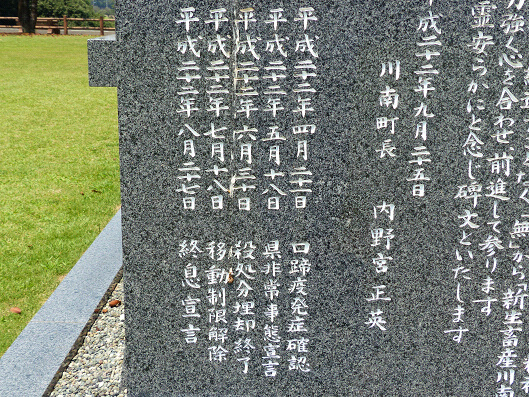 無"から「新生畜産川南
力強く心を合わせ、前進して参ります
霊安らかにと念じ碑文といたします
平成二十二年九月二十五日
川南町長 内野宮正英
平成二十二年四月二十一日 口蹄疫発症確認
平成二十二年五月十八日 県非常事態宣言
平成二十二年六月三十日 殺処分埋却終了
平成二十二年七月十八日 移動制限解除
平成二十二年八月二十七日 終息宣言